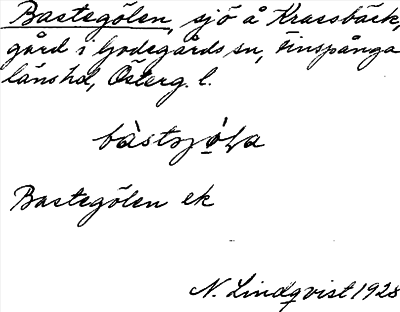 Bastegölen, sjö å Krassbäck,
gård i Godegårds sn, Finspånga
länshd, Österg. l.
Bastegölen ek
N. Lindqvist 1928